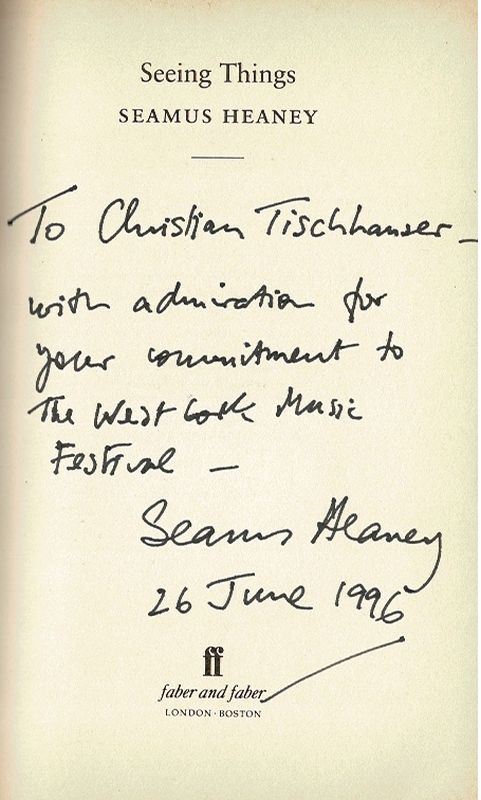 Seeing Things
SEAMUS HEANEY
To Christian Tischhauser –
with admiration for
your commitment to
The West Cork Music
Festival –
Seamus Heaney
26 June 1996
ff
faber and faber
LONDON · BOSTON